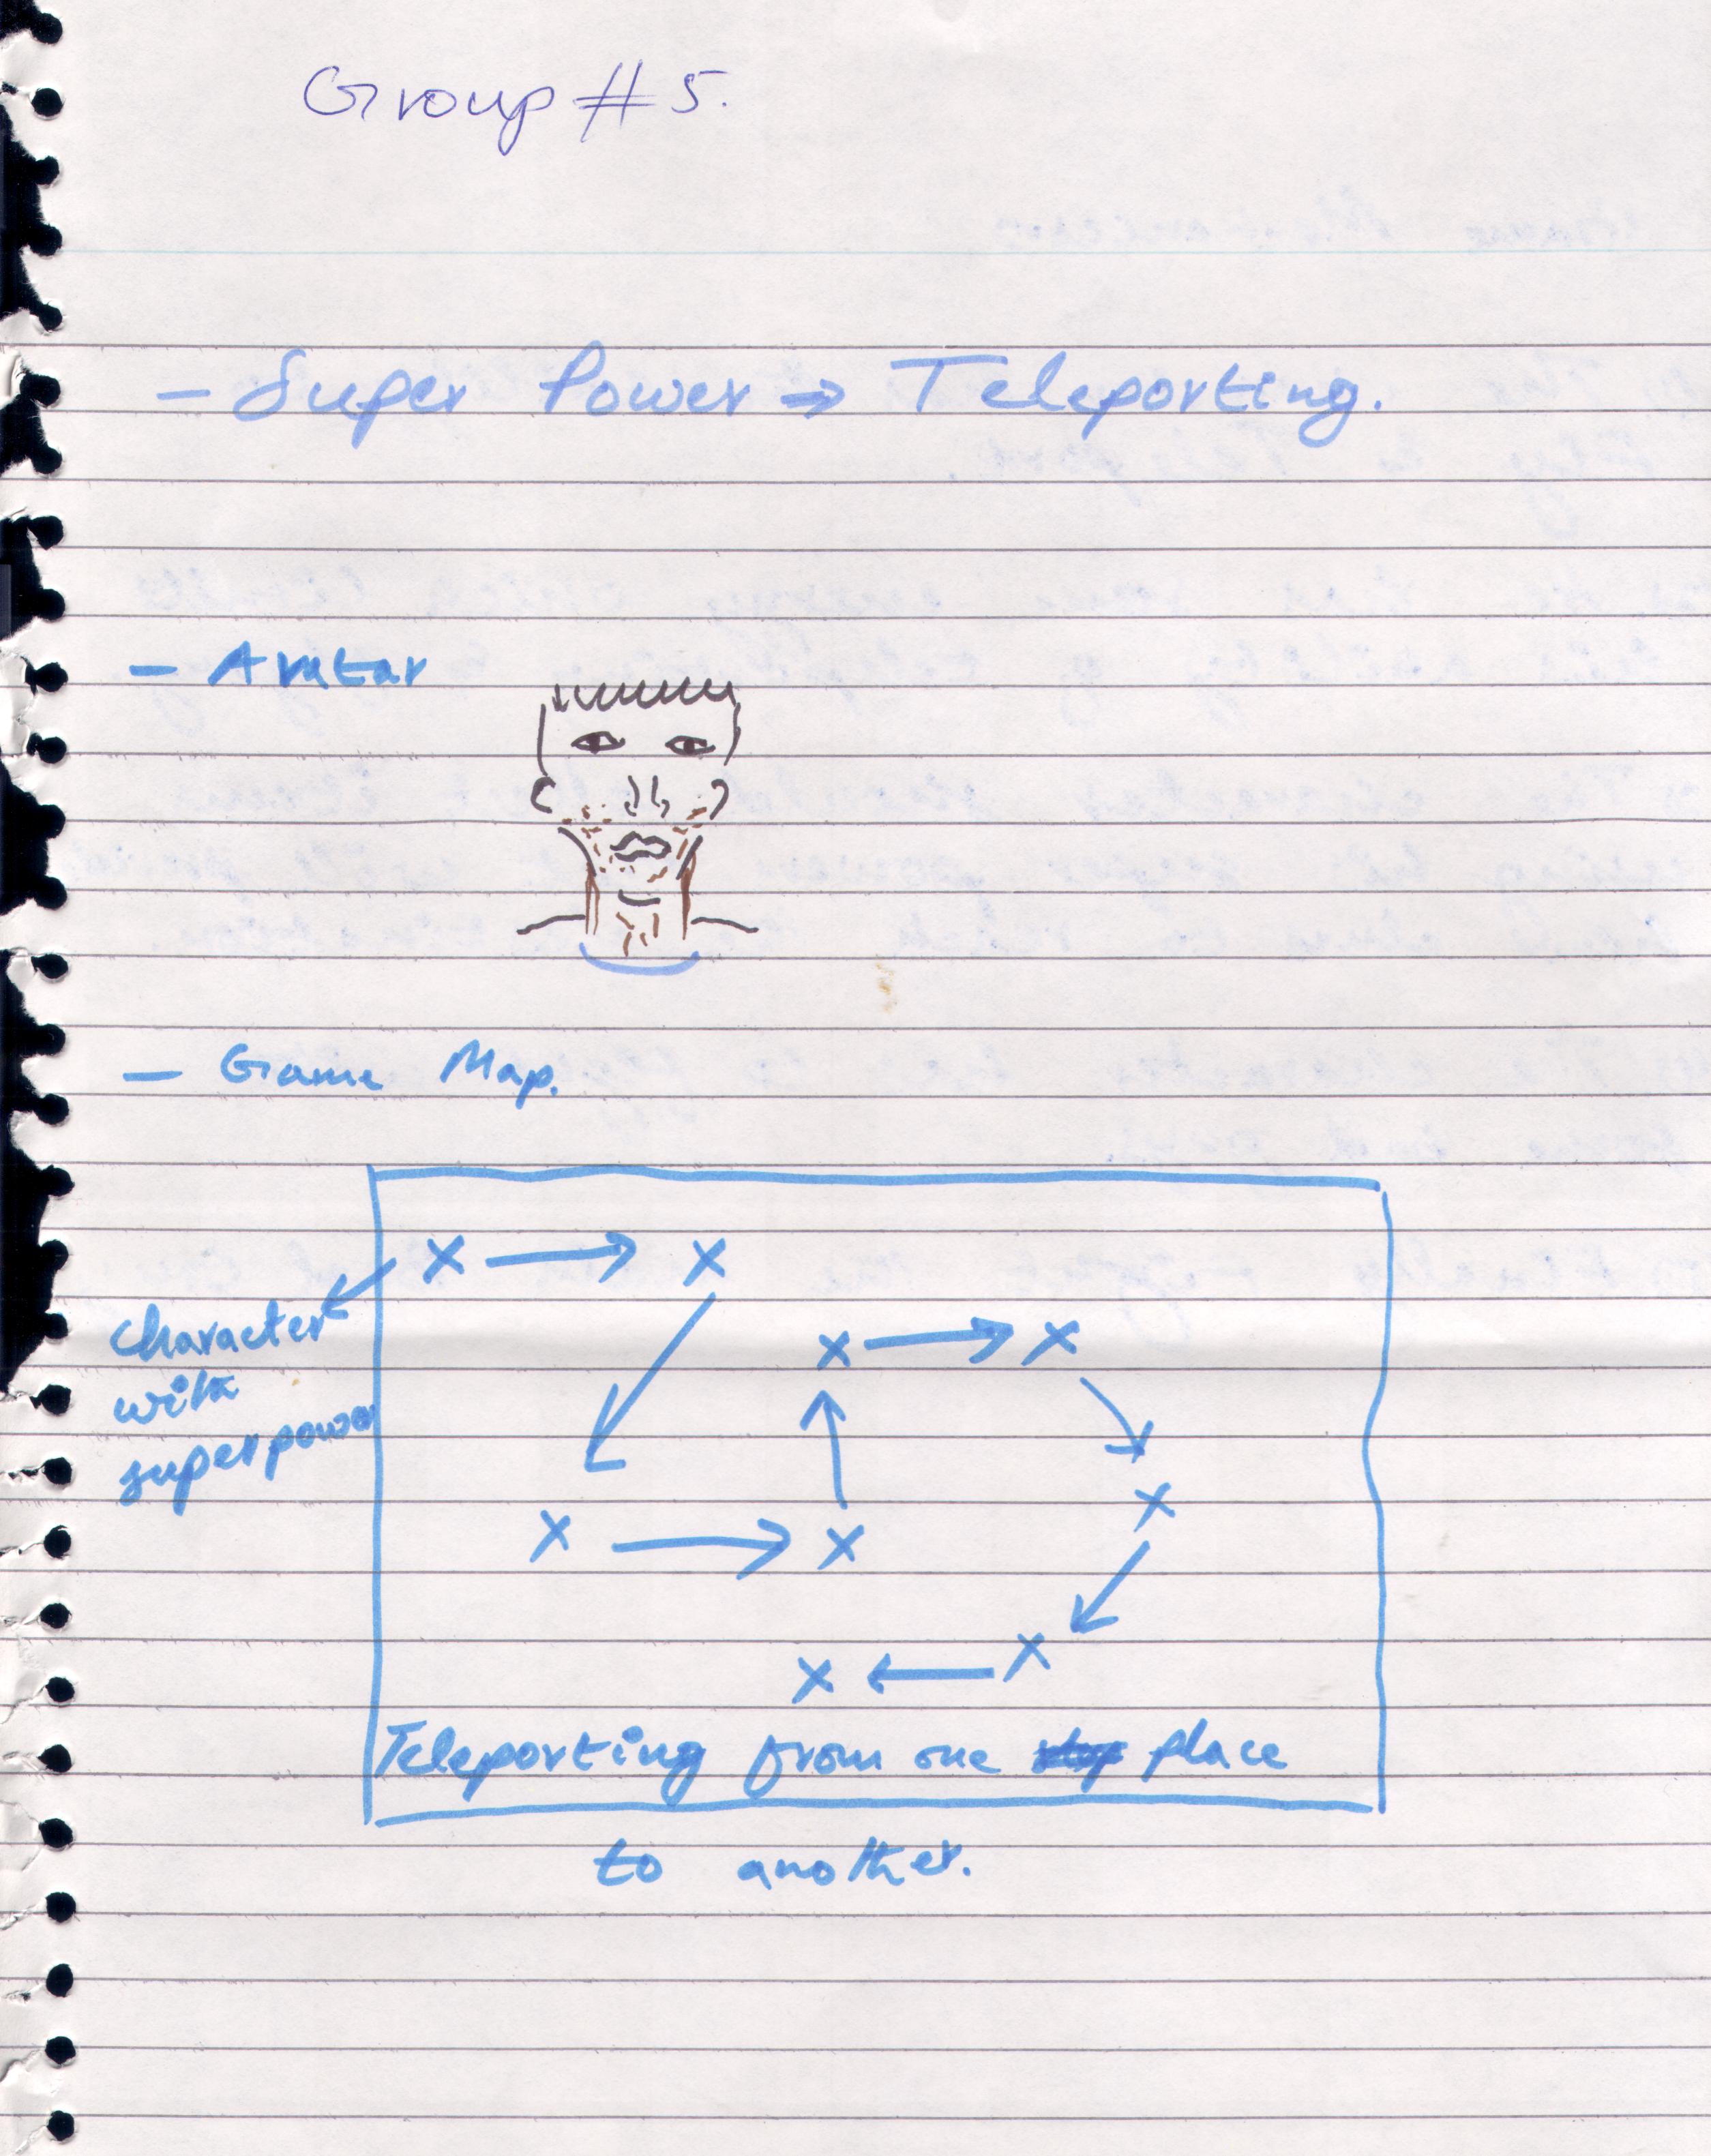 Group # 5.
- Super Power → Teleporting.
- Avatar
- Game Map.
X → X
character
with
superpower
X → X
X
X → X
X ← X
Teleporting from one place
to another.